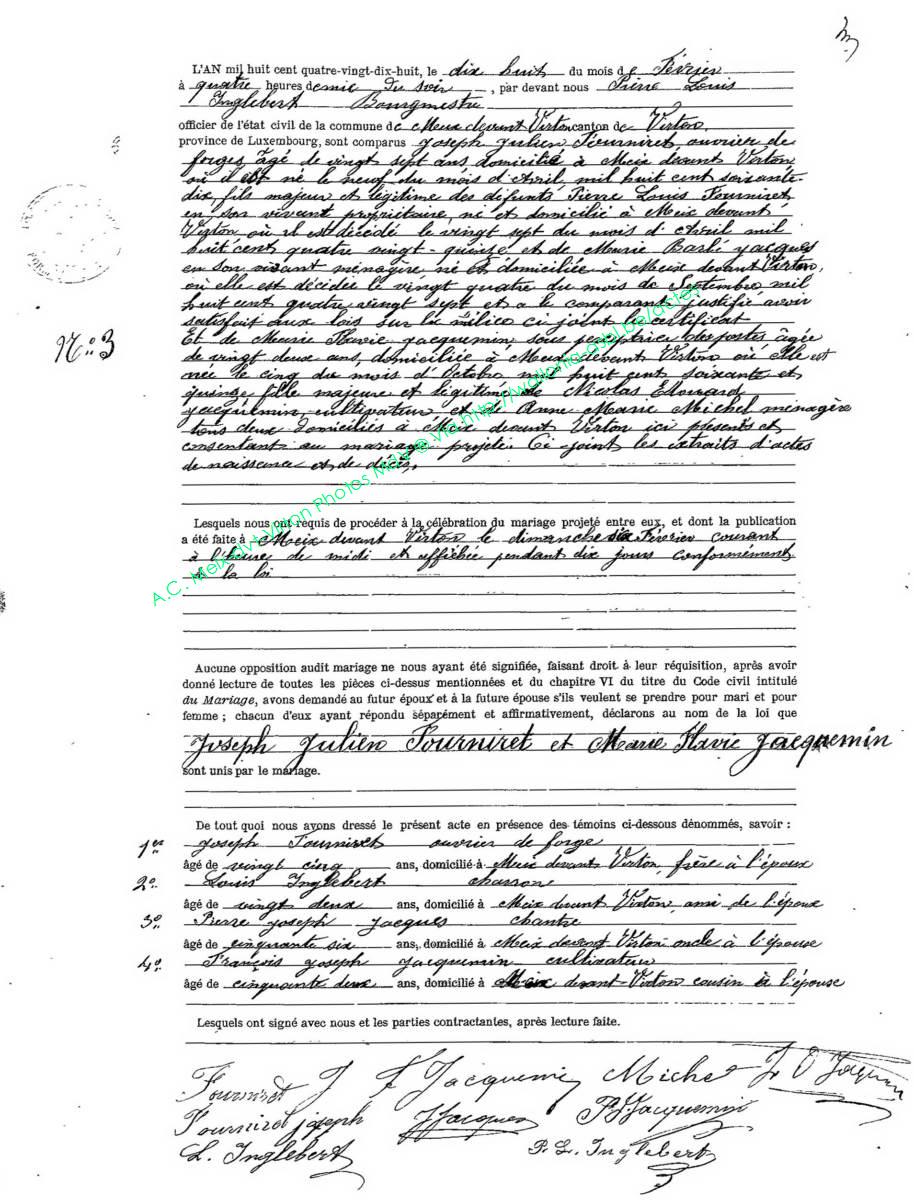 L'AN mil huit cent quatre-vingt-dix-huit, le dix huit du mois de Février
à quatre heures demie du soir, par devant nous Pierre Louis
Inglebert Bourgmestre
officier de l'état civil de la commune de Meix devant Virton canton de Virton,
province de Luxembourg, sont comparus Joseph Julien Fourniret, ouvrier de
forges âgé de vingt sept ans domicilié à Meix devant Virton
où il est né le neuf du mois d'Avril mil huit cent soixante
dix, fils majeur et légitime des défunts Pierre Louis Fourniret
en son vivant propriétaire, né et domicilié à Meix devant
Virton où il est décédé le vingt sept du mois d'Avril mil
huit cent quatre vingt-quinze et de Marie Barbe Jacques
en son vivant ménagère née et domiciliée à Meix devant Virton,
où elle est décédée le vingt quatre du mois de Septembre mil
huit cent quatre vingt sept et a le comparant justifié avoir
satisfait aux lois sur la milice ci joint le certificat
Et de Marie Flavie Jacquemin, sous perceptrice des postes âgée
de vingt deux ans, domiciliée à Meix devant Virton où elle est
née le cinq du mois d'Octobre mil huit cent soixante et
quinze fille majeure et légitime de Nicolas Edouard
Jacquemin, cultivateur et d'Anne Marie Michel ménagère
tous deux domiciliés à Meix devant Virton ici présents et
consentant au mariage projeté. Ci joint les extraits d'actes
de naissance et de décès.
N.o 3
Lesquels nous ont requis de procéder à la célébration du mariage projeté entre eux, et dont la publication
a été faite à Meix devant Virton le dimanche six Février courant
à l'heure de midi et affichée pendant dix jours conformément
à la loi
Aucune opposition audit mariage ne nous ayant été signifiée, faisant droit à leur réquisition, après avoir
donné lecture de toutes les pièces ci-dessus mentionnées et du chapitre VI du titre du Code civil intitulé
du Mariage, avons demandé au futur époux et à la future épouse s'ils veulent se prendre pour mari et pour
femme ; chacun d'eux ayant répondu séparément et affirmativement, déclarons au nom de la loi que
Joseph Julien Fourniret et Marie Flavie Jacquemin
sont unis par le mariage.
De tout quoi nous avons dressé le présent acte en présence des témoins ci-dessous dénommés, savoir :
1er Joseph Fourniret ouvrier de forge
âgé de vingt cinq ans, domicilié à Meix devant Virton, frère à l'époux
2o. Louis Inglebert charron
âgé de vingt deux ans, domicilié à Meix devant Virton, ami de l'époux
3o. Pierre Joseph Jacques chantre
âgé de cinquante six ans, domicilié à Meix devant Virton oncle à l'épouse
4o. François Joseph Jacquemin cultivateur
âgé de cinquante deux ans, domicilié à Meix devant-Virton cousin à l'épouse
Lesquels ont signé avec nous et les parties contractantes, après lecture faite.
Fourniret J F Jacquemin Michel
Fourniret joseph J Jacques Jacquemin
L. Inglebert P. L. Inglebert
A.C. Meix-dvt-Virton Photos MDV © via http://wallonia-asbl.be/actes